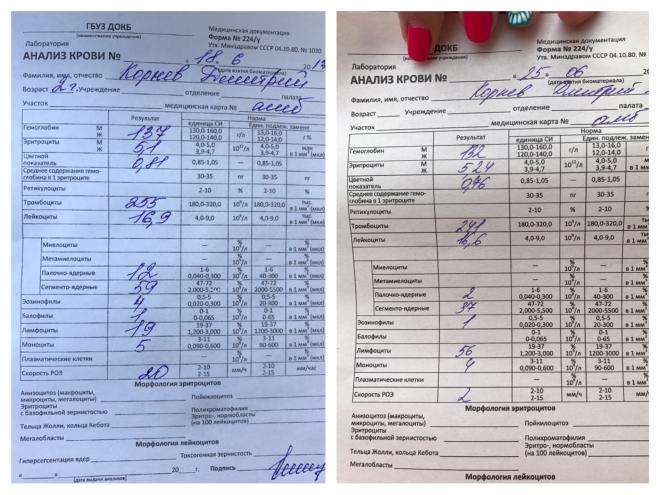 ГБУЗ ДОКБ
(наименование учреждения)
Лаборатория
Медицинская документация
Форма № 224/у
Утв. Минздравом СССР 04.10.80. № 1030
АНАЛИЗ КРОВИ № 18. 6 2017
(дата взятия биоматериала)
Фамилия, имя, отчество Корнев Дмитрий
Возраст 2 г. Учреждение отделение палата
Участок медицинская карта № амб
Результат Норма
единица СИ Един. подлеж. замене
Гемоглобин М Ж 137 130,0-160,0 120,0-140,0 г/л 13,0-16,0 12,0-14,0 г %
Эритроциты М Ж 51 4,0-5,0 3,9-4,7 10¹²/л 4,0-5,0 3,9-4,7 млн в 1 мм³ (мкл)
Цветной показатель 0,81 0,85-1,05 — 0,85-1,05
Среднее содержание гемоглобина в 1 эритроците 30-35 пг 30-35 пг
Ретикулоциты 2-10 % 2-10 %
Тромбоциты 235 180,0-320,0 10⁹/л 180,0-320,0 тыс. в 1 мм³ (мкл)
Лейкоциты 16,9 4,0-9,0 10⁹/л 4,0-9,0 тыс. в 1 мм³ (мкл)
Миелоциты — % 10⁹/л — % в 1 мм³ (мкл)
Метамиелоциты — % 10⁹/л — % в 1 мм³ (мкл)
Палочко-ядерные 12 1-6 0,040-0,300 % 10⁹/л 1-6 40-300 % в 1 мм³ (мкл)
Сегменто-ядерные 59 47-72 % 10⁹/л 47-72 2000-5500 % в 1 мм³ (мкл)
Эозинофилы 4 0,5-5 0,020-0,300 % 10⁹/л 0,5-5 20-300 % в 1 мм³ (мкл)
Базофилы 1 0-1 0-0,065 % 10⁹/л 0-1 0-65 % в 1 мм³ (мкл)
Лимфоциты 19 19-37 1,200-3,000 % 10⁹/л 19-37 1200-3000 % в 1 мм³ (мкл)
Моноциты 5 3-11 0,090-0,600 % 10⁹/л 3-11 90-600 % в 1 мм³ (мкл)
Плазматические клетки — % 10⁹/л — % в 1 мм³ (мкл)
Скорость РОЭ 20 2-10 2-15 мм/ч 2-10 2-15 мм/час
Морфология эритроцитов
Анизоцитоз (макроциты, микроциты, мегалоциты) Пойкилоцитоз
Эритроциты с базофильной зернистостью Полихроматофилия
Эритро-, нормобласты (на 100 лейкоцитов)
Тельца Жолли, кольца Кебота
Мегалобласты
Морфология лейкоцитов
Гиперсегментация ядер Токсогенная зернистость
« » 20 г. Подпись
(дата выдачи анализов)
ДОКБ
(наименование учреждения)
Лаборатория
Медицинская документация
Форма № 224/у
Утв. Минздравом СССР 04.10.80. №
АНАЛИЗ КРОВИ № « 25 » 06
(дата взятия биоматериала)
Фамилия, имя, отчество Корнев Дмитрий
Возраст Учреждение отделение палата
Участок медицинская карта № амб
Результат Норма
единица СИ Един. подлеж. замене
Гемоглобин М Ж 132 130,0-160,0 120,0-140,0 г/л 13,0-16,0 12,0-14,0 г %
Эритроциты М Ж 524 4,0-5,0 3,9-4,7 10¹²/л 4,0-5,0 3,9-4,7 млн в 1 мм³
Цветной показатель 0,85-1,05 — 0,85-1,05
Среднее содержание гемоглобина в 1 эритроците 30-35 пг 30-35 пг
Ретикулоциты 2-10 % 2-10 %
Тромбоциты 180,0-320,0 10⁹/л 180,0-320,0 тыс. в 1 мм³
Лейкоциты 16,6 4,0-9,0 10⁹/л 4,0-9,0 в 1 мм³
Миелоциты — % 10⁹/л — % в 1 мм³
Метамиелоциты — % 10⁹/л — % в 1 мм³
Палочко-ядерные 2 1-6 0,040-0,300 % 10⁹/л 1-6 40-300 % в 1 мм³
Сегменто-ядерные 37 47-72 2,000-5,500 % 10⁹/л 47-72 2000-5500 % в 1 мм³
Эозинофилы 1 0,5-5 0,020-0,300 % 10⁹/л 0,5-5 20-300 % в 1 мм³
Базофилы 0-1 0-0,065 % 10⁹/л 0-1 0-65 % в 1 мм³
Лимфоциты 56 19-37 1,200-3,000 % 10⁹/л 19-37 1200-3000 % в 1 мм³
Моноциты 4 3-11 0,090-0,600 % 10⁹/л 3-11 90-600 % в 1 мм³
Плазматические клетки — % 10⁹/л — % в 1 мм³
Скорость РОЭ 2 2-10 2-15 мм/ч 2-10 2-15 мм/ч
Морфология эритроцитов
Анизоцитоз (макроциты, микроциты, мегалоциты) Пойкилоцитоз
Эритроциты с базофильной зернистостью Полихроматофилия
Эритро-, нормобласты (на 100 лейкоцитов)
Тельца Жолли, кольца Кебота
Мегалобласты
Морфология лейкоцитов